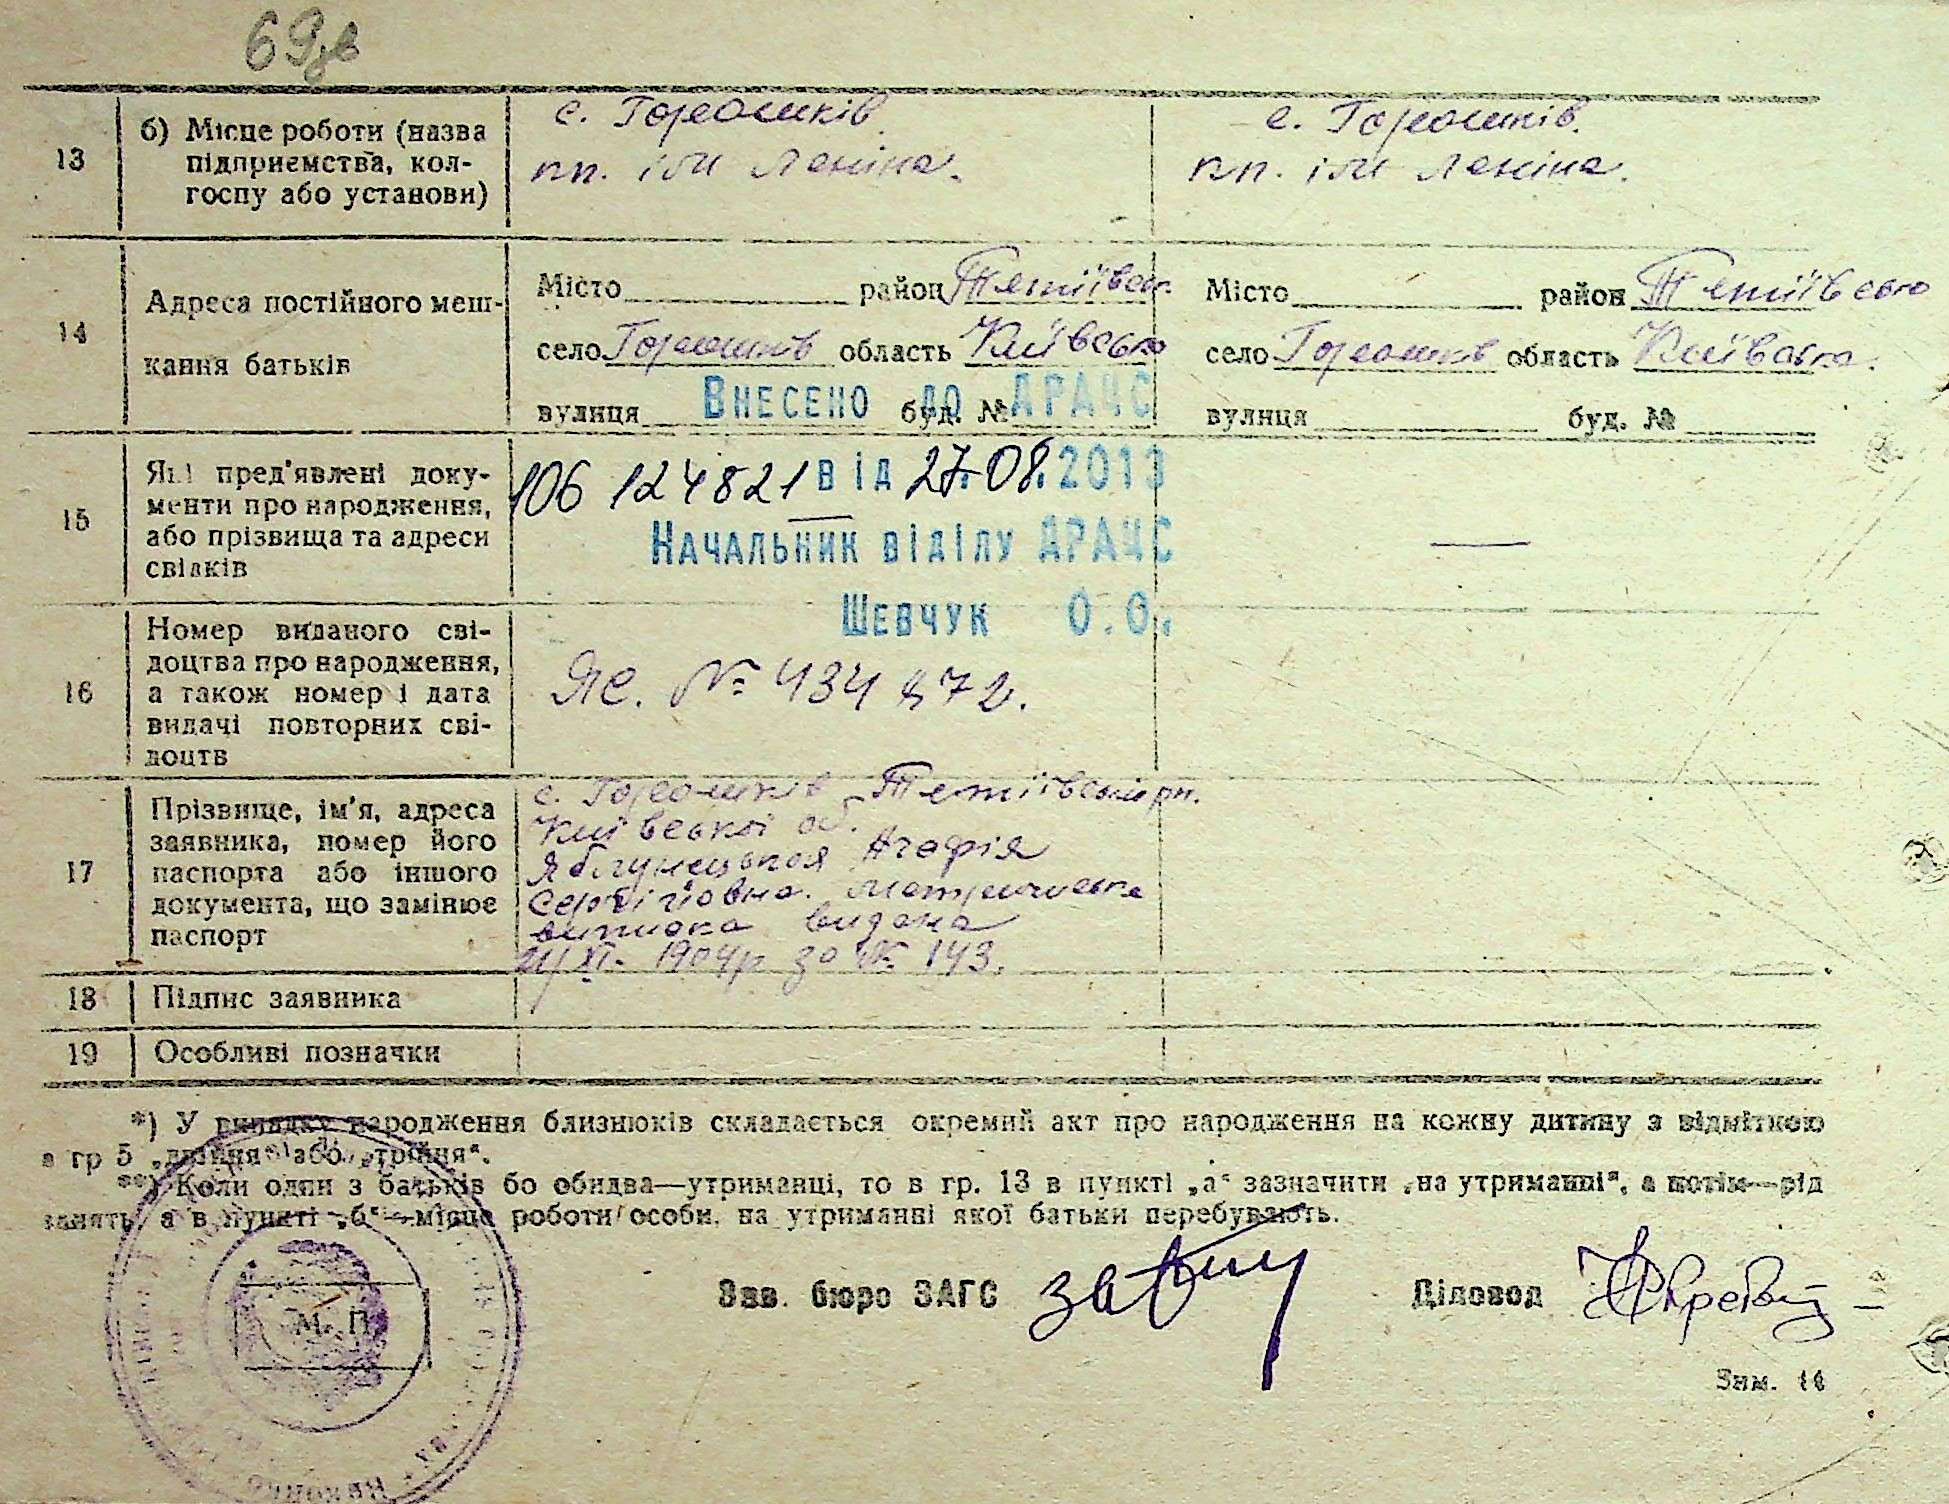 69зв
13
б) Місце роботи (назва
підприємства, кол-
госпу або установи)
с. Горошків.
пп. ім Леніна.
с. Горошків.
пп. ім Леніна.
14
Адреса постійного меш-
кання батьків
Місто район Тетіївськ.
село Горошків область Київсько
вулиця буд. №
Місто район Тетіївсько
село Горошків область Київська.
вулиця буд. №
Внесено до ДРАЦС
106 124821 від 27.08.2013
Начальник відділу ДРАЦС
Шевчук О.О.
15
Які пред'явлені доку-
менти про народження,
або прізвища та адреси
свідків
16
Номер виданого сві-
доцтва про народження,
а також номер і дата
видачі повторних сві-
доцтв
ЯС. № 434872.
17
Прізвище, ім'я, адреса
заявника, номер його
паспорта або іншого
документа, що замінює
паспорт
с. Горошків Тетіївський рн.
Київської об.
Яблунецькая Агафія
Сергіївна. Метрическа
выписка видана
XI. 1904р за № 143.
18
Підпис заявника
19
Особливі позначки
*) У випадку народження близнюків складається окремий акт про народження на кожну дитину з відміткою
в гр 5 „двійня“ або „трійня“.
**) Коли один з батьків бо обидва—утриманці, то в гр. 13 в пункті „а“ зазначити „на утриманні“, а потім—рід
занять, а в пункті „б“—місце роботи особи, на утриманні якої батьки перебувають.
М. П.
Зав. бюро ЗАГС
Діловод
Зам.